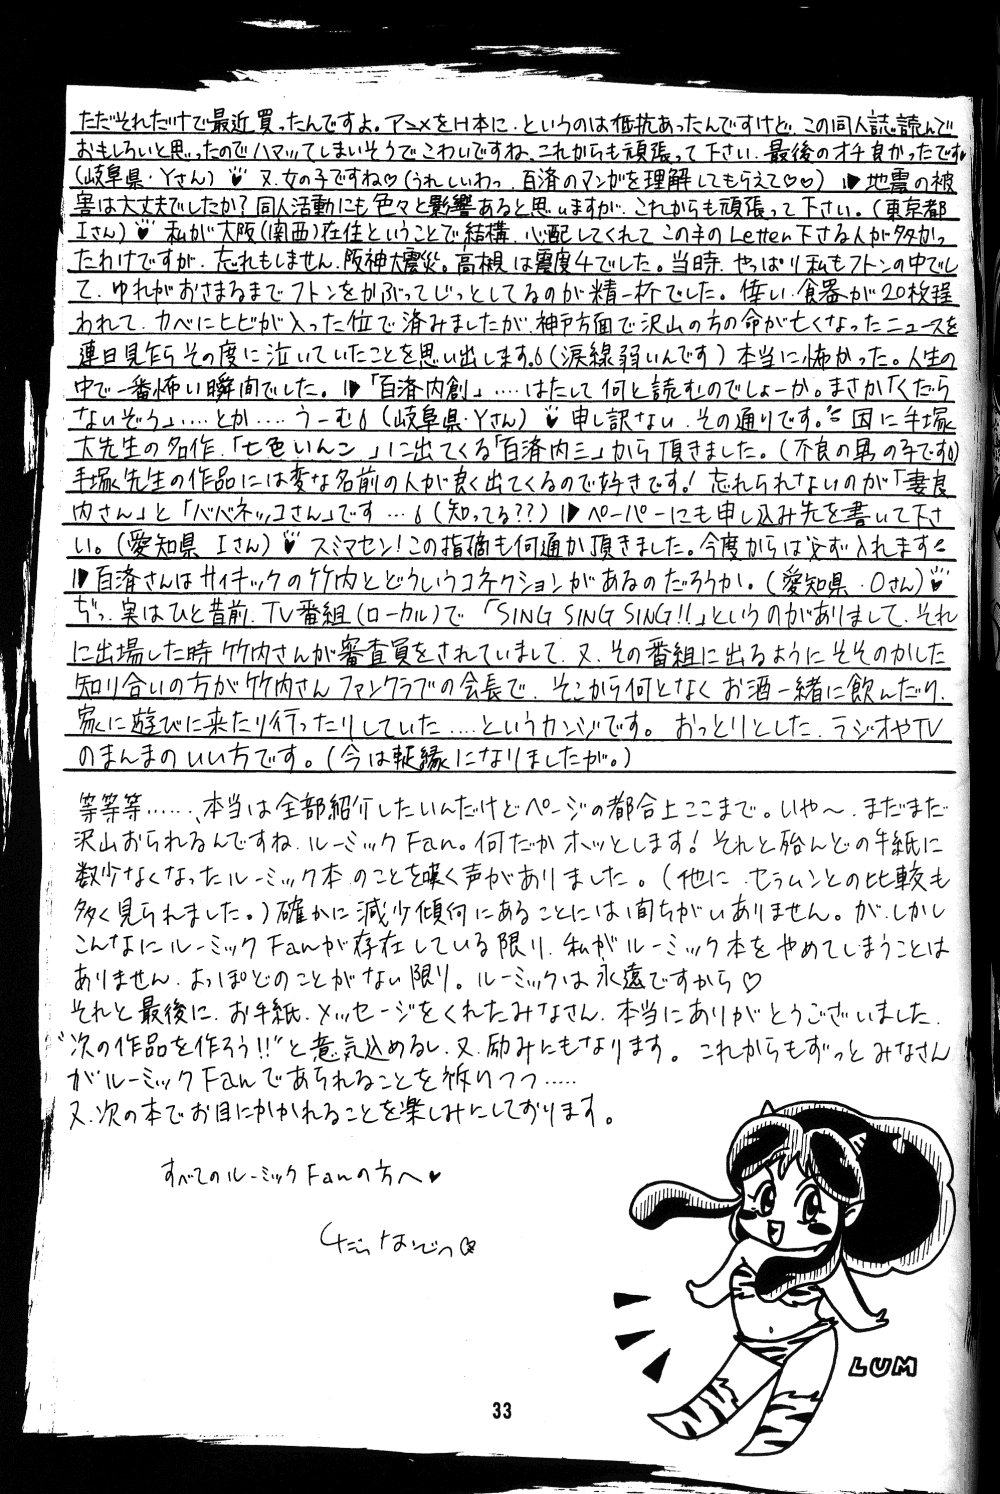 ただそれだけで最近買ったんですよ。アニメをH本に、というのは抵抗あったんですけど、この同人誌読んで
おもしろいと思ったのでハマッてしまいそうでこわいですね、これからも頑張って下さい。最後のオチ良かったです♥
(岐阜県・Yさん) 又、女の子ですね♡(うれしいわっ、百済のマンガを理解してもらえて♡♡) 地震の被
害は大丈夫でしたか？同人活動にも色々と影響あると思いますが、これからも頑張って下さい。(東京都
Iさん) 私が大阪(関西)在住ということで結構、心配してくれてこの手のLetter下さる人が多かっ
たわけですが、忘れもしません、阪神大震災。高槻は震度4でした。当時、やっぱり私もフトンの中でし
て、ゆれがおさまるまでフトンをかぶってじっとしてるのが精一杯でした。倖い、食器が20枚程
われて、カベにヒビが入った位で済みましたが、神戸方面で沢山の方の命が亡くなったニュースを
連日見ながらその度に泣いていたことを思い出します。(涙線弱いんです) 本当に怖かった。人生の
中で一番怖い瞬間でした。「百済内創」‥‥はたして何と読むのでしょーか。まさか「くだら
ないぞう」‥‥とか‥‥うーむ (岐阜県・Yさん) 申し訳ない、その通りです。因に手塚
大先生の名作、「七色いんこ」に出てくる「百済内三」から頂きました。(不良の男の子です)
手塚先生の作品には変な名前の人が良く出てくるので好きです！忘れられないのが「妻良
内さん」と「ババネッコさん」です‥‥(知ってる??) ペーパーにも申し込み先を書いて下さ
い。(愛知県 Iさん) スミマセン！この指摘も何通か頂きました。今度からは必ず入れます
百済さんはサイキックの竹内とどういうコネクションがあるのだろうか。(愛知県・Oさん)
ぢっ、実はひと昔前、TV番組(ローカル)で「SING SING SING!!」というのがありまして、それ
に出場した時竹内さんが審査員をされていまして、又、その番組に出るようにそそのかした
知り合いの方が竹内さんファンクラブの会長で、そこから何となくお酒一緒に飲んだり、
家に遊びに来たり行ったりしていた‥‥というカンジです。おっとりとした、ラジオやTV
のまんまのいい方です。(今は疎縁になりましたが。)
等等等‥‥‥、本当は全部紹介したいんだけどページの都合上ここまで。いや〜、まだまだ
沢山おられるんですね、ルーミックFan。何だかホッとします！それと殆んどの手紙に
数少なくなったルーミック本のことを嘆く声がありました。(他に、セラムンとの比較も
多く見られました。)確かに減少傾向にあることには間ちがいありません。が、しかし
こんなにルーミックFanが存在している限り、私がルーミック本をやめてしまうことは
ありません、よっぽどのことがない限り。ルーミックは永遠ですから♡
それと最後に、お手紙、メッセージをくれたみなさん、本当にありがとうございました、
"次の作品を作ろう!!"と意気込めるし、又、励みにもなります。これからもずっとみなさん
がルーミックFanであられることを祈りつつ‥‥‥
又、次の本でお目にかかれることを楽しみにしております。
すべてのルーミックFanの方へ♥
LUM
33